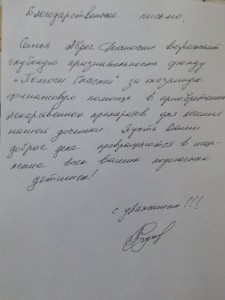 Благодарственное письмо.
Семья выражает
глубокую признательность фонду
"Помоги Спасти" за оказанную
финансовую помощь в приобретении
лекарственных препаратов для лечения
нашей доченьки. Пусть Ваши
добрые дела превращаются в
всех Ваших
детишек!
с уважением!!!